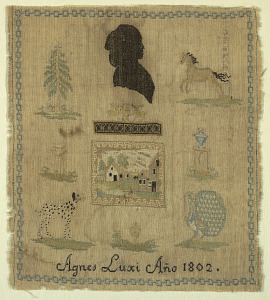 Agnes Luxi Año 1802.